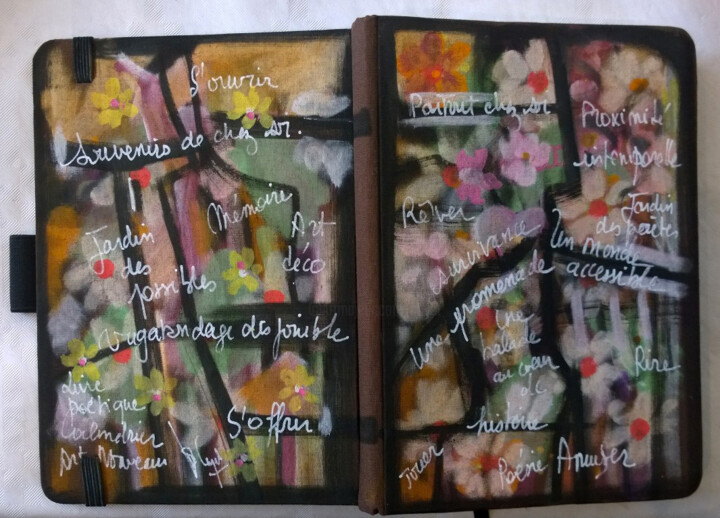 S'ouvrir
Souvenirs de chez soi.
Mémoire
Art
déco
Jardin
des
possibles
Vagabondage disponible
Livre
poétique
Calendrier
Art Nouveau
S'offrir
Partout chez soi
Proximité
intemporelle
Rêver
survivance
Jardin
des poètes
Un monde
accessible
Une promenade
Une
balade
au cœur
de
histoire
Rire
Poésie Amuser